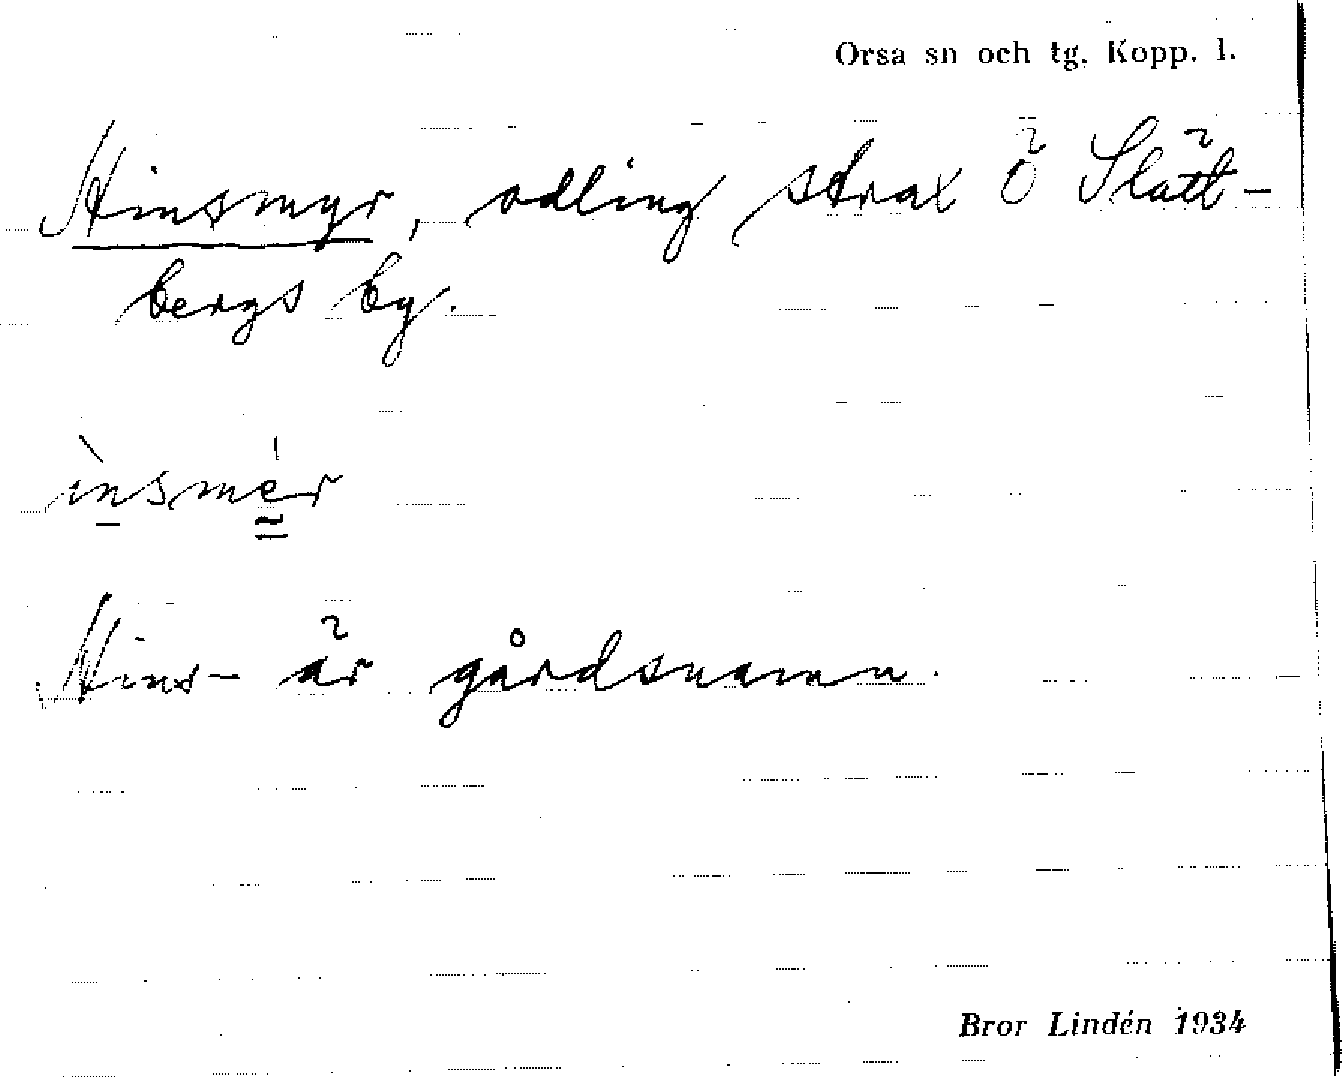 Orsa sn och tg. Kopp. l.
Hinsmyr, odling strax Ö Slätt-
bergs by.
ìnsmér
Hins- är gårdsnamn.
Bror Lindén 1934